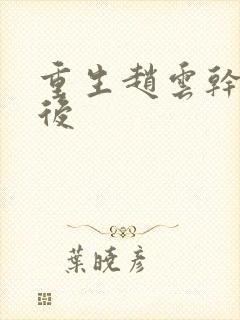 重生趙雲幹
後
葉曉彥